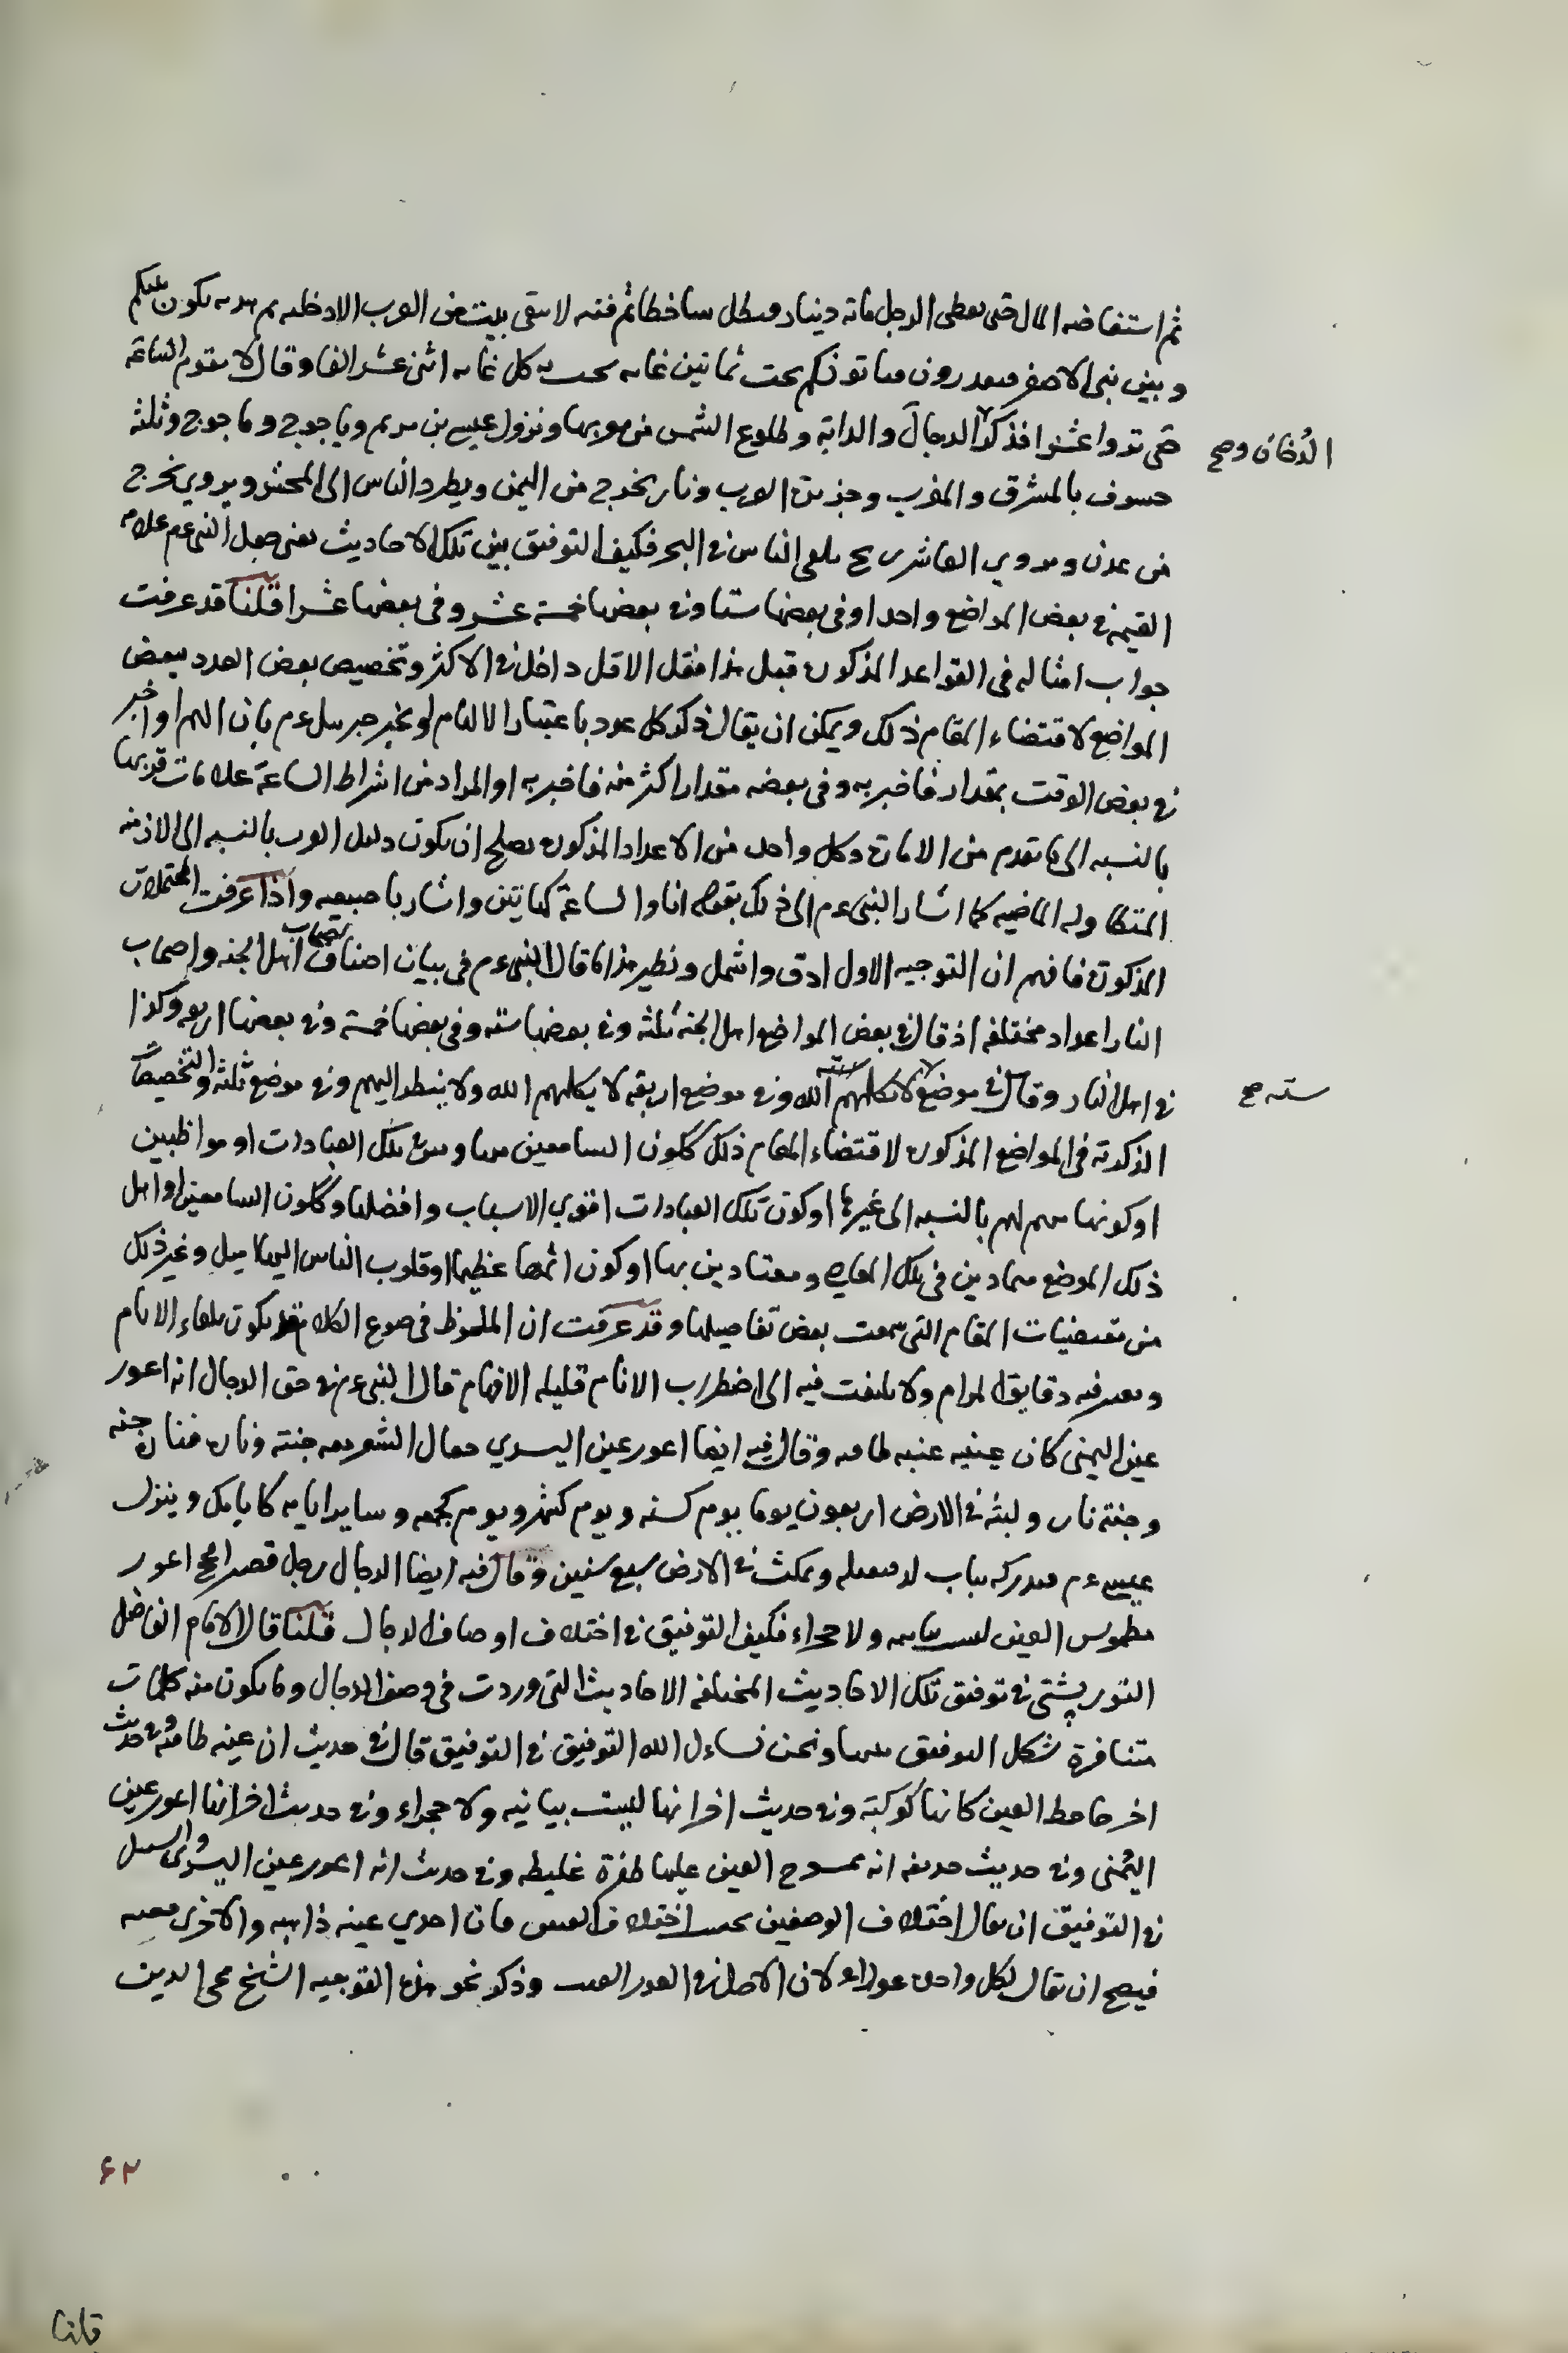 ثم استفاضه المال حتى يعطى الرجل مائه دينار فيظل ساخطا ثم فتنه لا يبقى بيت من العرب الا دخلته ثم هدنه تكون بينكم
وبين بنى الاصفر فيغدرون فياتونكم تحت ثمانين غايه تحت كل غايه اثنى عشر الفا وقال لا تقوم الساعة
حتى تروا عشرا فذكر الدجال والدابة وطلوع الشمس من مغربها ونزول عيسى بن مريم وياجوج وماجوج وثلثة
الدُخان وصح
خسوف بالمشرق والمغرب وجزيرة العرب ونار يخرج من اليمن ويطرد الناس الى المحشر ويروي يخرج
من عدن ويروي العاشر ريح يلقى الناس فى البحر فكيف التوفيق بين تلك الاحاديث يعنى جعل النبى عم علامة
القيمة فى بعض المواضع واحدا وفى بعضها ستا وفى بعضها خمسة عشر وفى بعضها عشرا قلنا قد عرفت
جواب امثاله فى القواعد المذكورة قبل هذا فنقل الاقل داخل فى الاكثر وتخصيص بعض العدد ببعض
المواضع لاقتضاء المقام ذلك ويمكن ان يقال ذكر كل عدد باعتبار الالهام او بخبر جبريل عم بان الهم او اخبر
فى بعض الوقت بمقدار فاخبر به وفى بعضه مقدارا اكثر منه فاخبر به او المراد من اشراط الساعة علامات قربها
بالنسبه الى ما تقدم من الامارة وكل واحد من الاعداد المذكورة يصلح ان يكون دليل القرب بالنسبه الى الازمنه
المتطاوله الماضيه كما اشار النبى عم الى ذلك بقوله انا والساعة كهاتين واشار باصبعيه واذا عرفت المحتملات
المذكورة فافهم ان التوجيه الاول ادق واشمل ونظير هذا ما قال النبى عم فى بيان اصناف اهل الجنه واصحاب
النار اعداد مختلفه اذ قال فى بعض المواضع اهل الجنة ثلثة وفى بعضها سته وفى بعضها خمسة وفى بعضها اربعه وكذا
فى اهل النار وقال فى موضع لا يكلهم الله وفى موضع اربعة لا يكلهم الله ولا ينظر اليهم وفى موضع ثلثة والتخصيصات
ستة صح
الذكرته فى المواضع المذكورة لاقتضاء المقام ذلك ككون السامعين تلك العبادات او مواظبين
او كونها مهم لهم بالنسبه الى غيرها او كون تلك العبادات اقوي الاسباب وافضلها وككون السامعين او اهل
ذلك الموضع متمادين فى تلك المعاصى ومعتادين بها او كون اثمها عظيما او قلوب الناس اليها اميل وغير ذلك
من مقتضيات المقام التى سمعت بعض تفاصيلها وقد عرفت ان الملحوظ فى صوغ الكلام يكون الانام
ويعرفه دقايق المرام ولا يلتفت فيه الى اضطراب الانام قليله الافهام قال النبى عم فى حق الدجال انه اعور
عين اليمنى كان عينيه عنبه طافيه وقال فيه ايضا اعور عين اليسري جفال الشعر معه جنته وناره فناره جنه
وجنته نار ولبثه فى الارض اربعون يوما يوم كسنه ويوم كشهر ويوم كجمعه وساير ايامه كايامك وينزل
عيسى عم فيدركه بباب لد فيقتله ويمكث فى الارض سبع سنين وقال فيه ايضا الدجال رجل قصير افحج اعور
مطموس العين ليست بناتيه ولا حجراء فكيف التوفيق فى اختلاف اوصاف الدجال قلنا قال الامام الفاضل
التوريشتى فى توفيق تلك الاحاديث المختلفه الاحاديث التى وردت فى وصف الدجال وما يكون منه كلمات
متنافرة شكل التوفيق بينها ونحن نساءل الله التوفيق فى التوفيق قال فى حديث ان عينه طافيه وفى حديث
اخر جاحظ العين كانها كوكبة وفى حديث اخر انها ليست بناتيه ولا حجراء وفى حديث اخر انها اعور عين
اليمنى وفى حديث حذيفه انه ممسوح العين عليها ظفرة غليظه وفى حديث انه اعور عين اليسرى والسبيل
فى التوفيق ان يقال اختلاف الوصفين بحسب اختلاف العينين فان احدي عينه ذاهبه والاخرى معيبه
فيصح ان يقال لكل واحدة عوراء لان الاصل فى العور العيب وذكر نحو هذا التوجيه الشيخ محى الدين
۶۲
قلنا